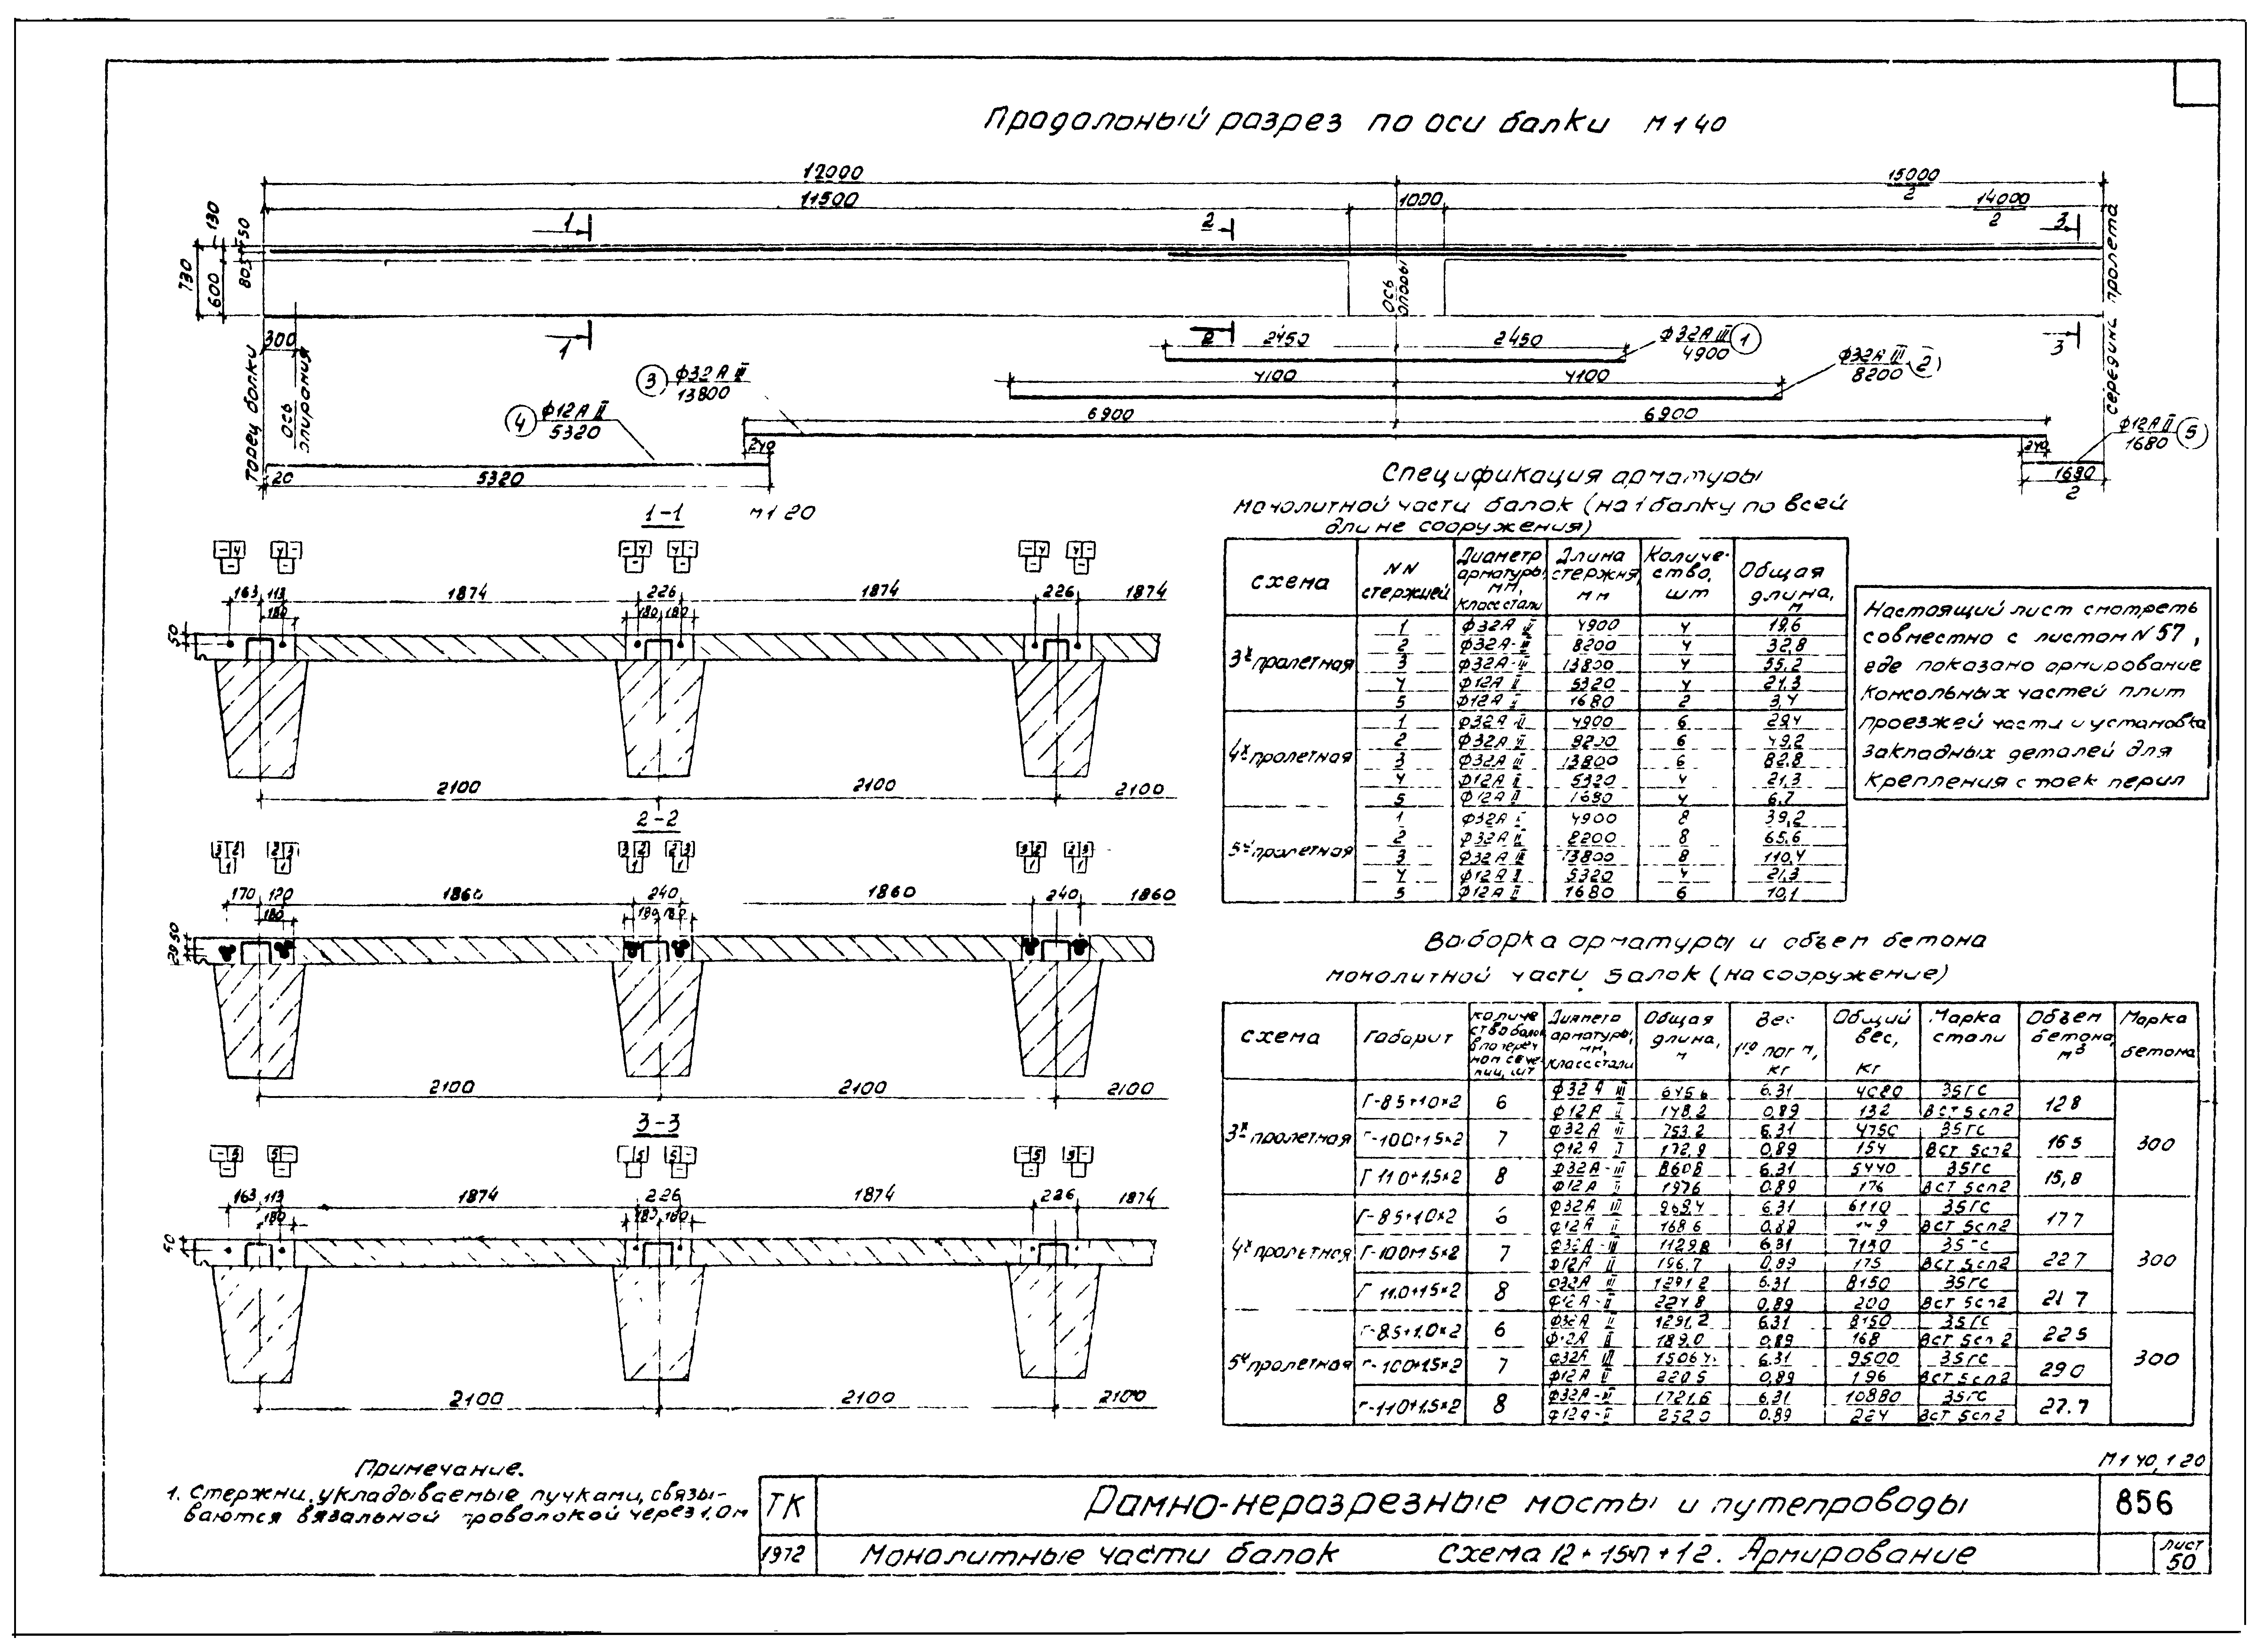 Продольный разрез по оси балки М 1 40
12000
15000
2
11500
1000
14000
2
130
50
1
2
3
730
600
80
ось
опоры
середина пролета
300
1
2
2450
2450
ф32А III
4900
1
3
Торец балки
ось
опирания
3
ф32А III
13800
4100
4100
ф32А III
8200
2
4
ф12А II
5320
6900
6900
240
240
ф12А II
1680
5
20
5320
1680
2
1-1
М 1 20
163
113
1874
226
1874
226
1874
180
180
180
50
2100
2100
2100
2-2
170
120
1860
240
1860
240
1860
180
180
180
50
20
2100
2100
2100
3-3
163
113
1874
226
1874
226
1874
180
180
180
50
2100
2100
2100
Спецификация арматуры
монолитной части балок (на 1 балку по всей
длине сооружения)
схема | NN стержней | Диаметр арматуры, мм, класс стали | Длина стержня, мм | Количество, шт | Общая длина, м
3х пролетная
1 ф32А III 4900 4 19,6
2 ф32А-III 8200 4 32,8
3 ф32А-III 13800 4 55,2
4 ф12А II 5320 4 21,3
5 ф12А II 1680 2 3,4
4х пролетная
1 ф32А-III 4900 6 29,4
2 ф32А III 8200 6 49,2
3 ф32А III 13800 6 82,8
4 ф12А II 5320 4 21,3
5 ф12А II 1680 4 6,7
5и пролетная
1 ф32А III 4900 8 39,2
2 ф32А III 8200 8 65,6
3 ф32А III 13800 8 110,4
4 ф12А II 5320 4 21,3
5 ф12А II 1680 6 10,1
Настоящий лист смотреть
совместно с листом N 57,
где показано армирование
консольных частей плит
проезжей части и установка
закладных деталей для
крепления стоек перил
Выборка арматуры и объем бетона
монолитной части балок (на сооружение)
схема | Габарит | количество балок в поперечном сечении, шт | Диаметр арматуры, мм, класс стали | Общая длина, м | Вес 1го пог м, кг | Общий вес, кг | Марка стали | Объем бетона, м3 | Марка бетона
3х пролетная
Г-8.5+1.0×2 6 ф32А III 645.6 6.31 4080 35ГС 12.8
ф12А II 148.2 0.89 132 Вст 5сп2
Г-10.0+1.5×2 7 ф32А III 753.2 6.31 4750 35ГС 16.5 300
ф12А II 172.9 0.89 154 Вст 5сп2
Г 11.0+1.5×2 8 ф32А-III 860.8 6.31 5440 35ГС 15,8
ф12А II 197.6 0.89 176 Вст 5сп2
4х пролетная
Г-8.5+1.0×2 6 ф32А III 968.4 6.31 6110 35ГС 17.7
ф12А II 168.6 0.89 149 Вст 5сп2
Г-10.0+1.5×2 7 ф32А-III 1129.8 6.31 7130 35ГС 22.7 300
ф12А II 196.7 0.89 175 Вст 5сп2
Г 11.0+1.5×2 8 ф32А III 1291.2 6.31 8150 35ГС 21.7
ф12А-II 224.8 0.89 200 Вст 5сп2
5и пролетная
Г-8.5+1.0×2 6 ф32А III 1291.2 6.31 8150 35ГС 22.5
ф12А II 189.0 0.89 168 Вст 5сп2
Г-10.0+1.5×2 7 ф32А III 1506.4 6.31 9500 35ГС 29.0 300
ф12А II 220.5 0.89 196 Вст 5сп2
Г-11.0+1.5×2 8 ф32А-III 1721.6 6.31 10880 35ГС 27.7
ф12А-II 252.0 0.89 224 Вст 5сп2
М 1 40, 1 20
Примечание.
1. Стержни, укладываемые пучками, связы-
ваются вязальной проволокой через 1,0 м
ТК
Рамно-неразрезные мосты и путепроводы
856
1972
Монолитные части балок Схема 12+15×п+12. Армирование
лист
50